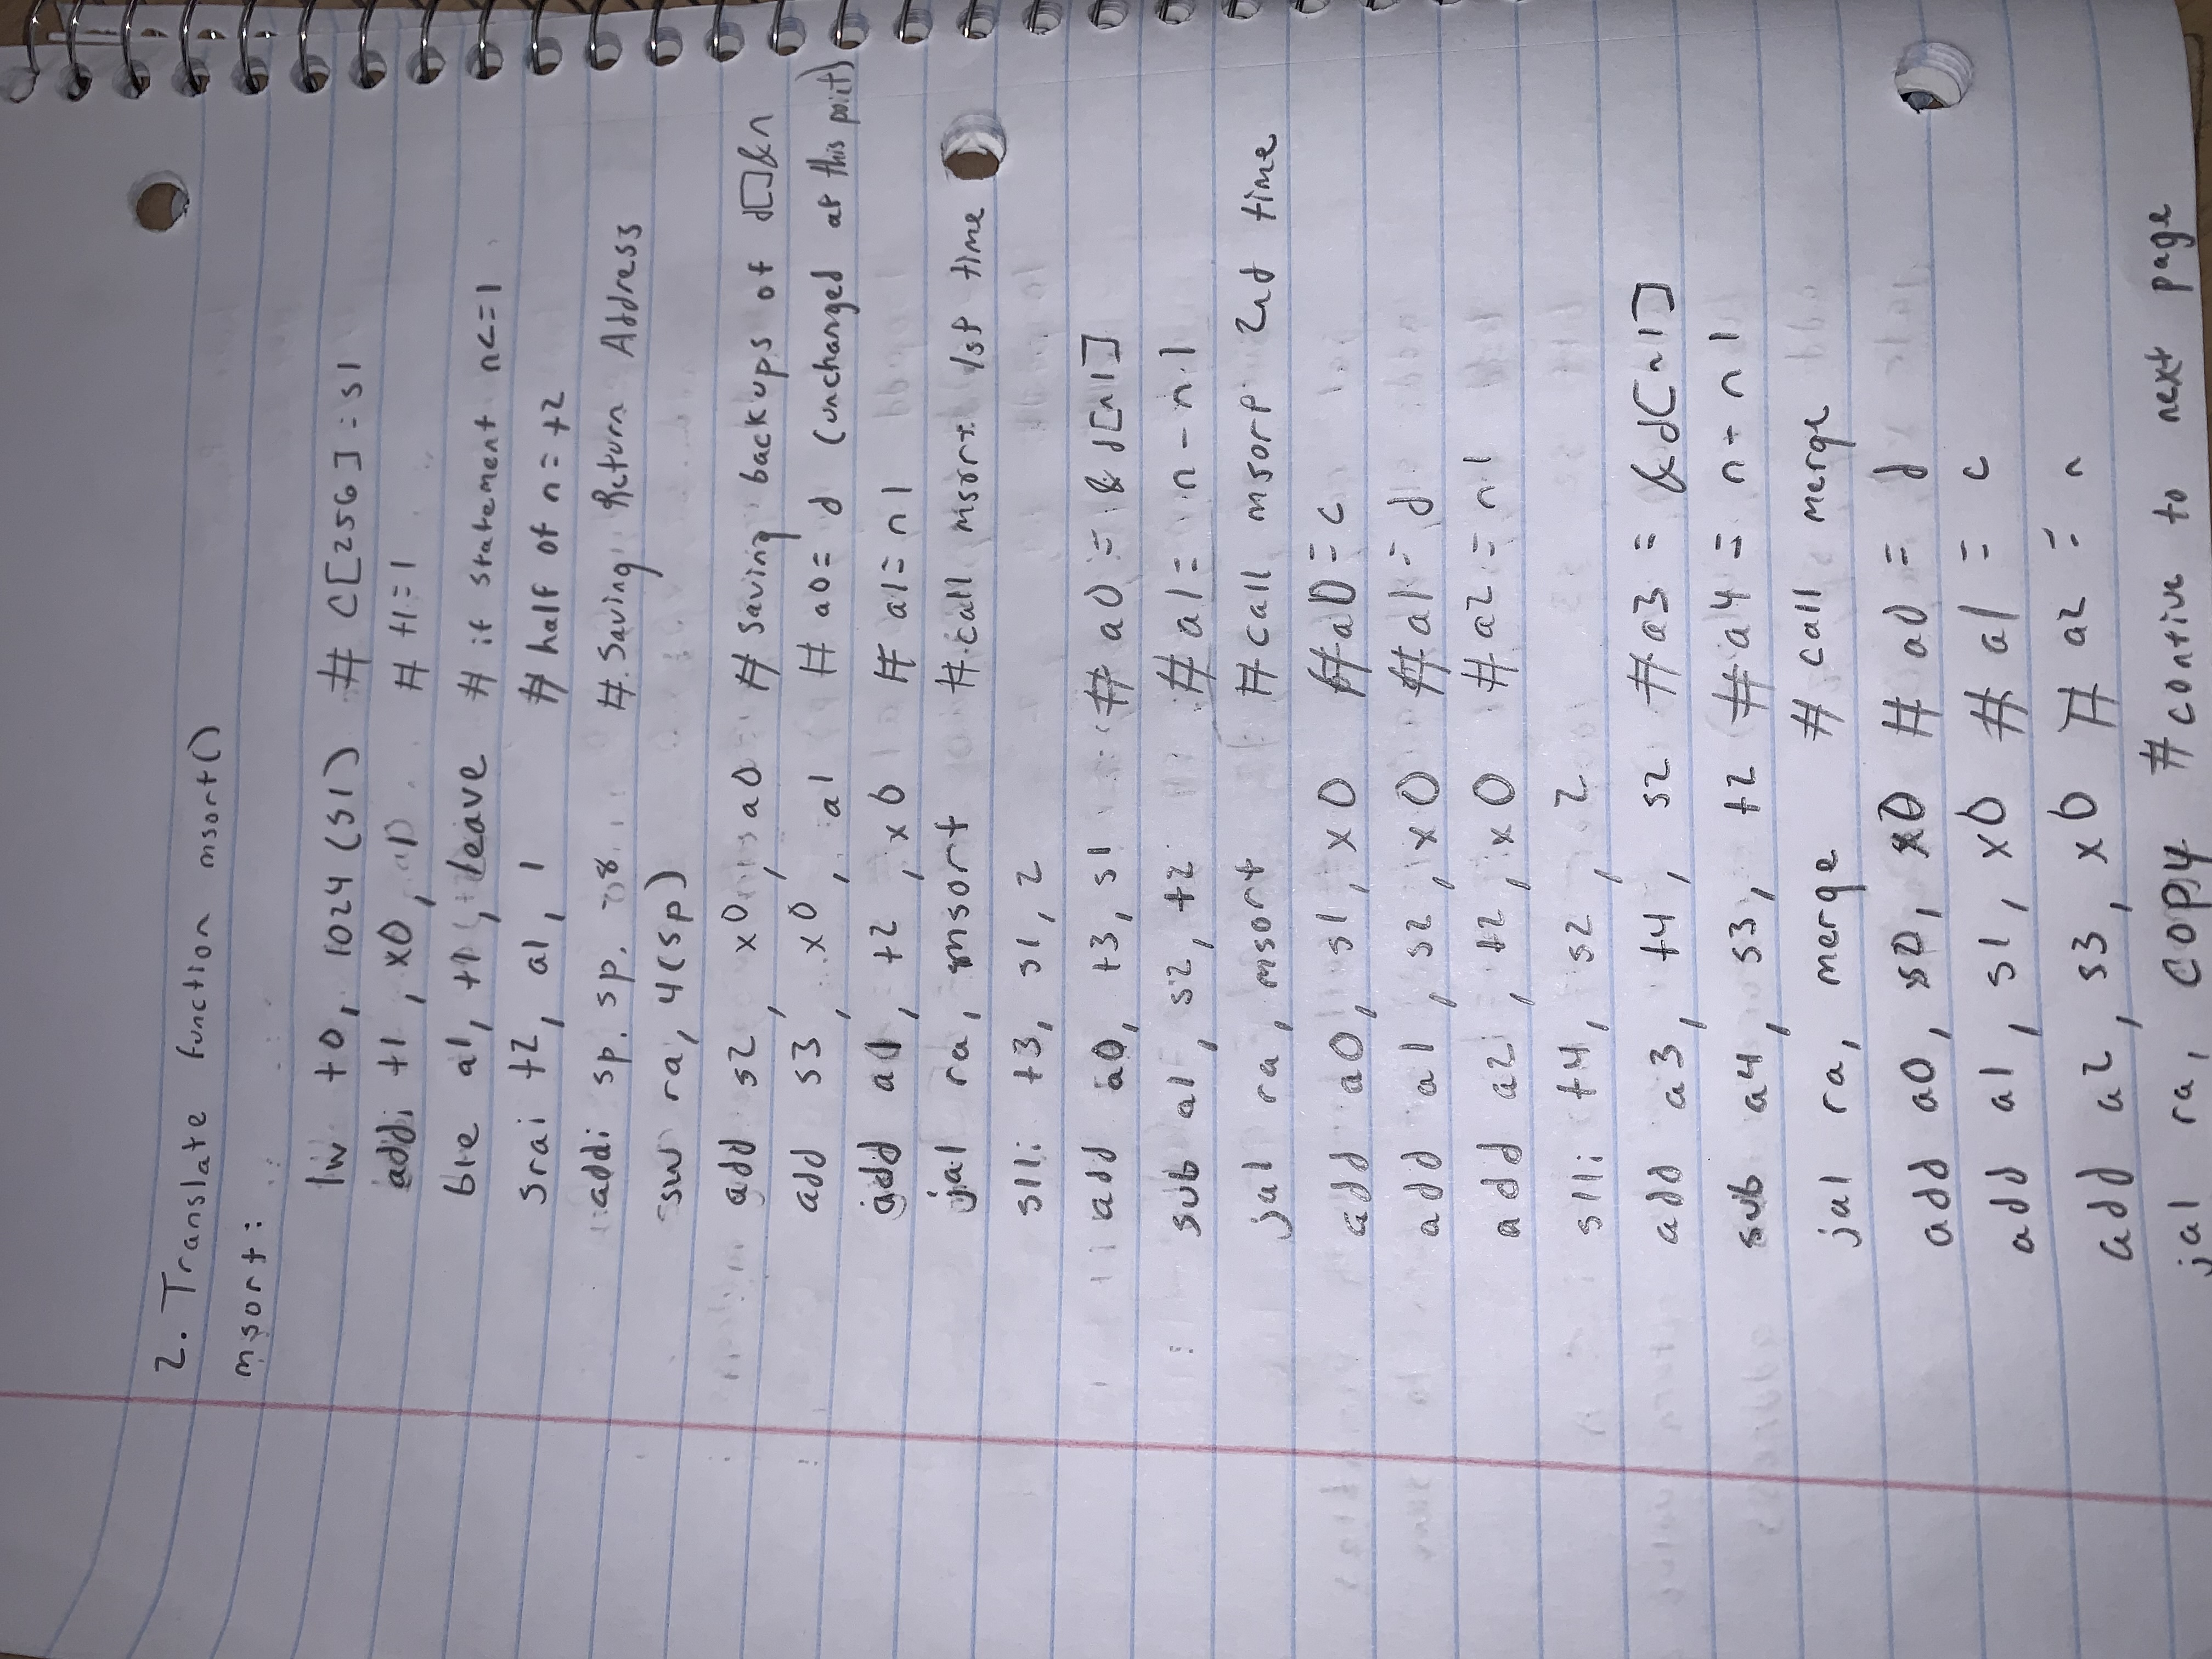 2. Translate function msort()
msort:
lw t0, 1024(s1) # C[256] = s1
addi t1, x0, 1 # t1 = 1
ble a1, t1, leave # if statement n<=1
srai t2, a1, 1 # half of n = t2
addi sp. sp. -8 # Saving Return Address
sw ra, 4(sp)
add s2, x0, a0 # saving backups of d[]&n
add s3, x0, a1 # a0= d (unchanged at this point)
add a1, t2, x0 # a1= n1
jal ra, msort # call msort 1st time
slli t3, s1, 2
add a0, t3, s1 # a0 = & d[n1]
sub a1, s2, t2 # a1= n - n1
jal ra, msort # call msort 2nd time
add a0, s1, x0 # a0 = c
add a1, s2, x0 # a1 = d
add a2, t2, x0 # a2 = n1
slli t4, s2, 2
add a3, t4, s2 # a3 = & d[n1]
sub a4, s3, t2 # a4 = n - n1
jal ra, merge # call merge
add a0, s0, x0 # a0 = d
add a1, s1, x0 # a1 = c
add a2, s3, x0 # a2 = n
jal ra, copy # contive to next page